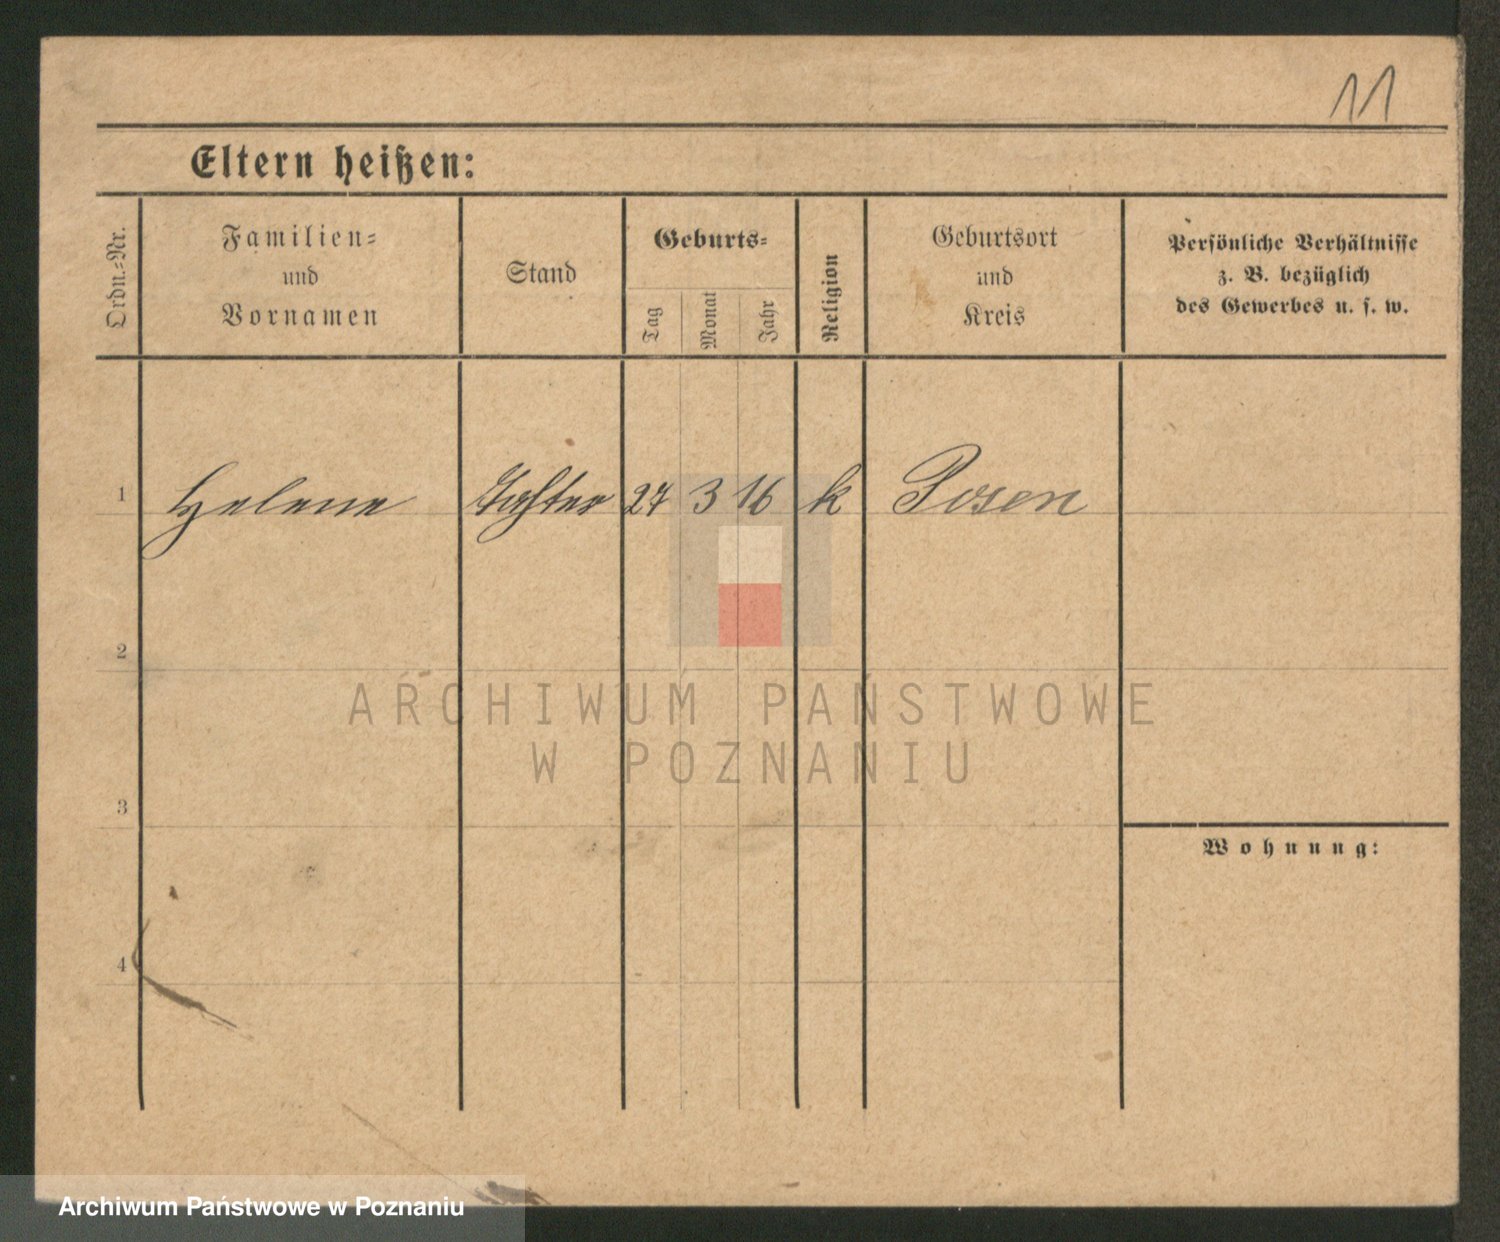 11
Eltern heißen:
Ordn.-Nr.
Familien-
und
Vornamen
Stand
Geburts-
Tag
Monat
Jahr
Religion
Geburtsort
und
Kreis
Persönliche Verhältnisse
z. B. bezüglich
des Gewerbes u. s. w.
1 Helene Tochter 27 3 16 k Posen
2
ARCHIWUM PAŃSTWOWE
W POZNANIU
3
Wohnung:
4
Archiwum Państwowe w Poznaniu